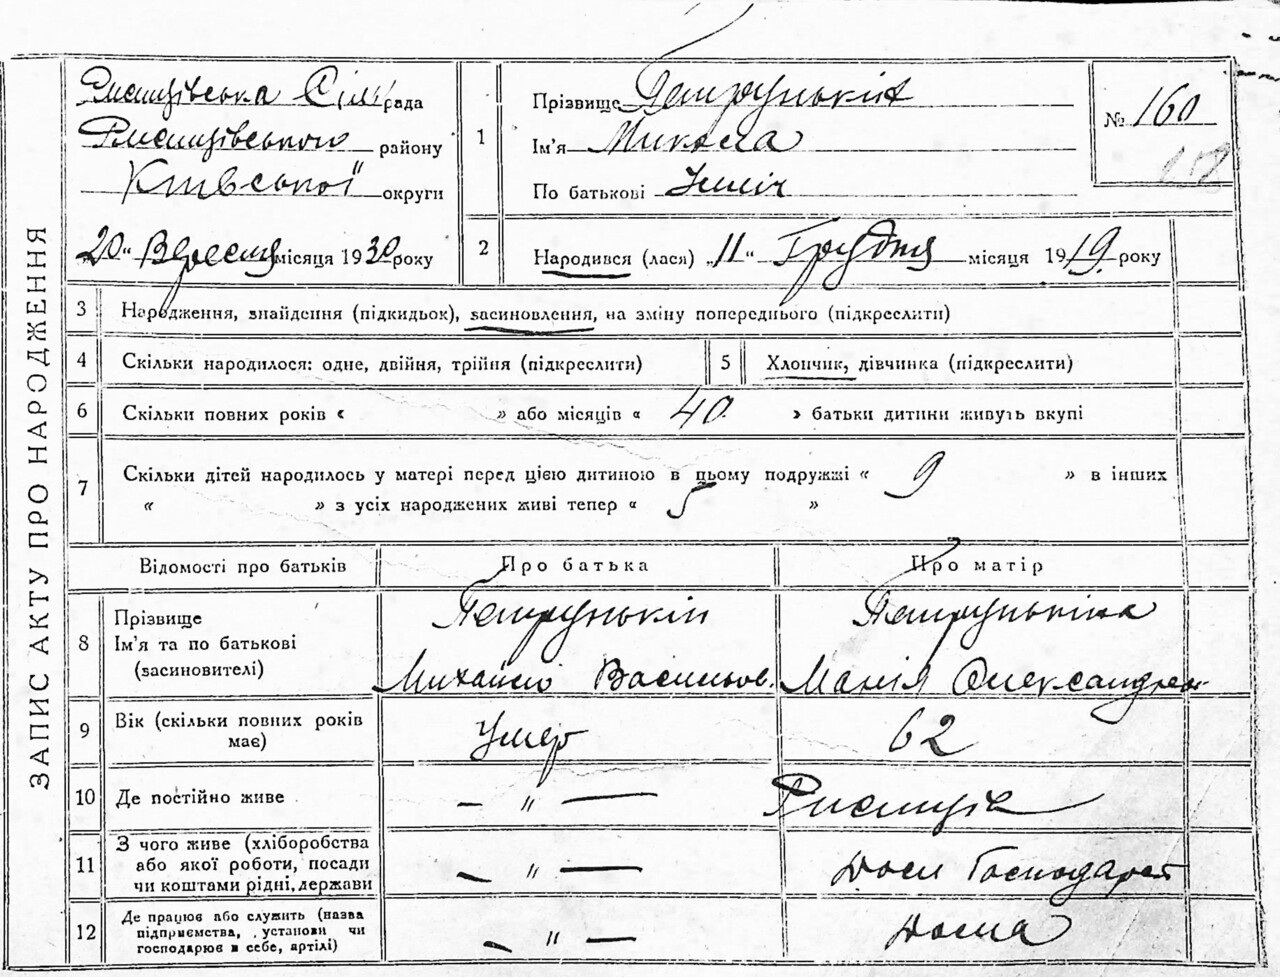 ЗАПИС АКТУ ПРО НАРОДЖЕННЯ
Рисицівська Сільрада
району
Київської округи
„20" Вересня місяця 1930 року
1
Прізвище Петрунькін
Ім'я Микола
По батькові
№ 160
158
2
Народився (лася) „11" Грудня місяця 1919 року
3 Народження, знайдення (підкидьок), засиновлення, на зміну попереднього (підкреслити)
4 Скільки народилося: одне, двійня, трійня (підкреслити)
5 Хлопчик, дівчинка (підкреслити)
6 Скільки повних років « » або місяців « 40 » батьки дитини живуть вкупі
7 Скільки дітей народилось у матері перед цією дитиною в цьому подружжі « 9 » в інших
« » з усіх народжених живі тепер « 5 »
Відомості про батьків Про батька Про матір
8 Прізвище
Ім'я та по батькові
(засиновителі)
Петрунькін
Михайло Васильов.
Петрунькіна
Марія Олександров
9 Вік (скільки повних років
має)
Умер
62
10 Де постійно живе
— „ —
11 З чого живе (хліборобства
або якої роботи, посади
чи коштами рідні, держави
— „ —
Дом Господарст
12 Де працює або служить (назва
підприємства, установи чи
господарює в себе, артілі)
— „ —
Дома